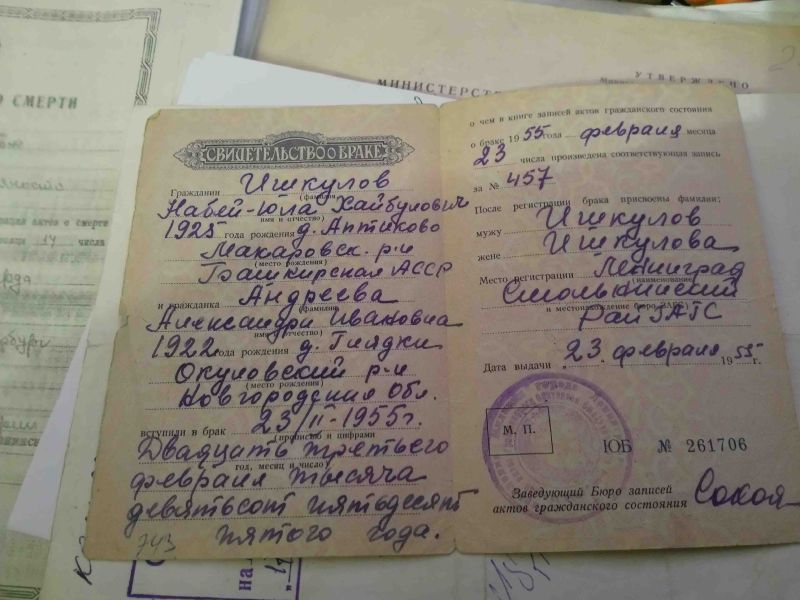 О СМЕРТИ
МИНИСТЕРСТ
УТВЕРЖДЕНО
СВИДЕТЕЛЬСТВО О БРАКЕ
Гражданин Ишкулов
(фамилия)
Набей-Юла Хайбулович
имя и отчество)
1925 года рождения д. Аптиково
Макаровск. р-н
(место рождения)
Башкирская АССР
и гражданка Андреева
(фамилия)
Александра Ивановна
имя и отчество)
1922 года рождения д.
Окуловский р-н
(место рождения)
Новгородская Обл.
вступили в брак 23/II-1955г.
(прописью и цифрами
Двадцать третьего
год, месяц и число)
февраля тысяча
девятьсот пятьдесят
пятого года.
743
о чем в книге записей актов гражданского состояния
о браке 1955 года февраля месяца
23 числа произведена соответствующая запись
за № 457
После регистрации брака присвоены фамилии:
мужу Ишкулов
жене Ишкулова
Место регистрации Ленинград
(наименование
Смольнинский
и местонахождение бюро ЗАГС)
РайЗАГС
Дата выдачи „23„ февраля 1955г.
М. П.
ЮБ № 261706
Заведующий Бюро записей
актов гражданского состояния Сокол